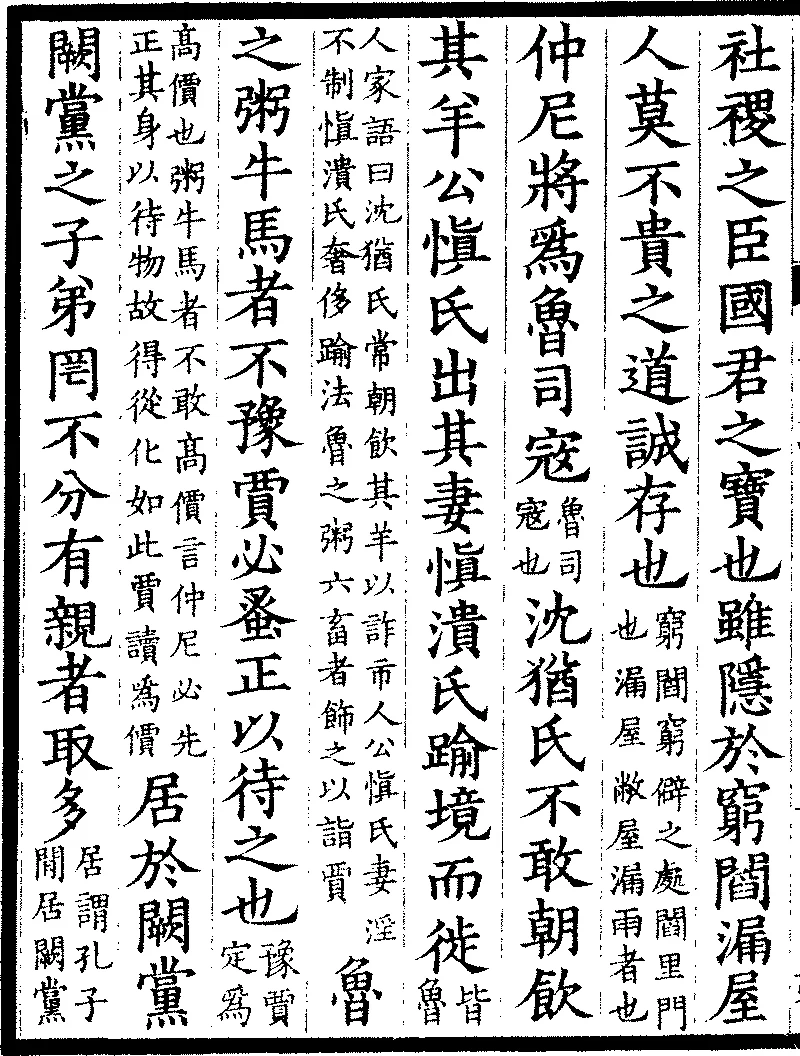 社禝之臣國君之寶也雖隱於窮閻漏屋
人莫不貴之道誠存也窮閻窮僻之處閻里門也漏屋敝屋漏雨者也
仲尼將爲魯司寇魯司寇也沈猶氏不敢朝飲
其羊公愼氏出其妻愼潰氏踰境而徙皆魯
人家語曰沈猶氏常朝飲其羊以詐市人公愼氏妻淫不制愼潰氏奢侈踰法魯之粥六畜者飾之以詣賈魯
之粥牛馬者不豫賈必蚤正以待之也豫賈定爲
髙價也粥牛馬者不敢髙價言仲尼必先正其身以待物故得從化如此賈讀爲價居於闕黨
闕黨之子弟罔不分有親者取多居謂孔子閒居闕黨